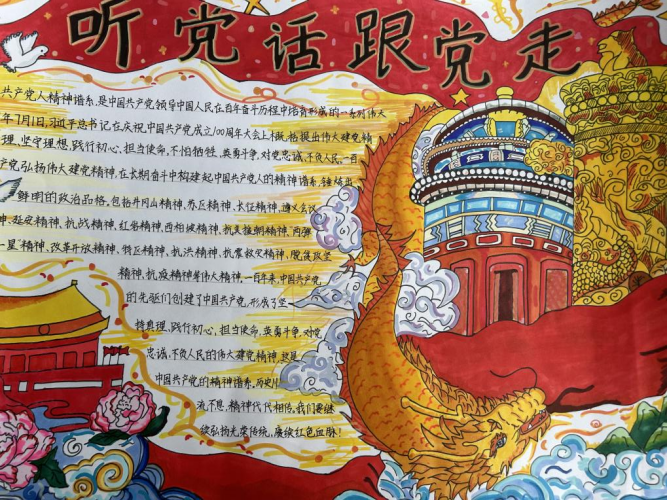 听党话跟党走
共产党人精神谱系,是中国共产党领导中国人民在百年奋斗历程中培育形成的一系列伟大
年7月1日,习近平总书记在庆祝中国共产党成立100周年大会上,指出伟大建党精
理、坚守理想,践行初心、担当使命,不怕牺牲、英勇斗争,对党忠诚、不负人民,一百
产党弘扬伟大建党精神,在长期奋斗中构建起中国共产党人的精神谱系,锤炼出
鲜明的政治品格,包括井冈山精神、苏区精神、长征精神、遵义会议
神、延安精神、抗战精神、红岩精神、西柏坡精神、抗美援朝精神、两弹
一星"精神、改革开放精神、特区精神、抗洪精神、抗震救灾精神、脱贫攻坚
精神、抗疫精神等伟大精神,一百年来,中国共产党
的先驱们创建了中国共产党,形成了坚
持真理、践行初心、担当使命、英勇斗争、对党
忠诚、不负人民的伟大建党精神,这是
中国共产党的精神谱系,历史川
流不息,精神代代相传,我们要继
续弘扬光荣传统,赓续红色血脉!